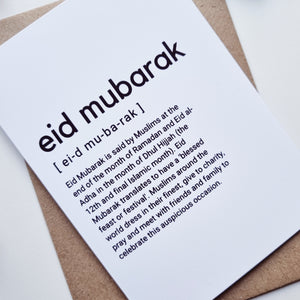 eid mubarak
[ ei-d mu-ba-rak ]
Eid Mubarak is said by Muslims at the
end of the month of Ramadan and Eid al-
Adha in the month of Dhul Hijjah (the
12th and final Islamic month). Eid
Mubarak translates to have a 'blessed
feast or festival'. Muslims around the
world dress in their finest, give to charity,
pray and meet with friends and family to
celebrate this auspicious occasion.